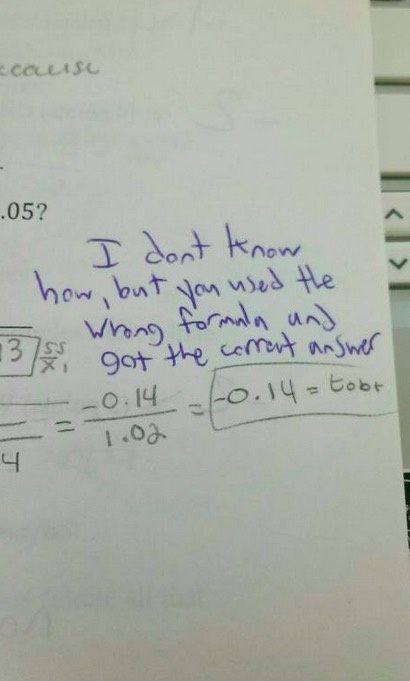 because
.05?
I dont know
how, but you used the
wrong formula and
got the corrent answer
13 SS/X₁
4 = -0.14/1.02 = -0.14 = tobt